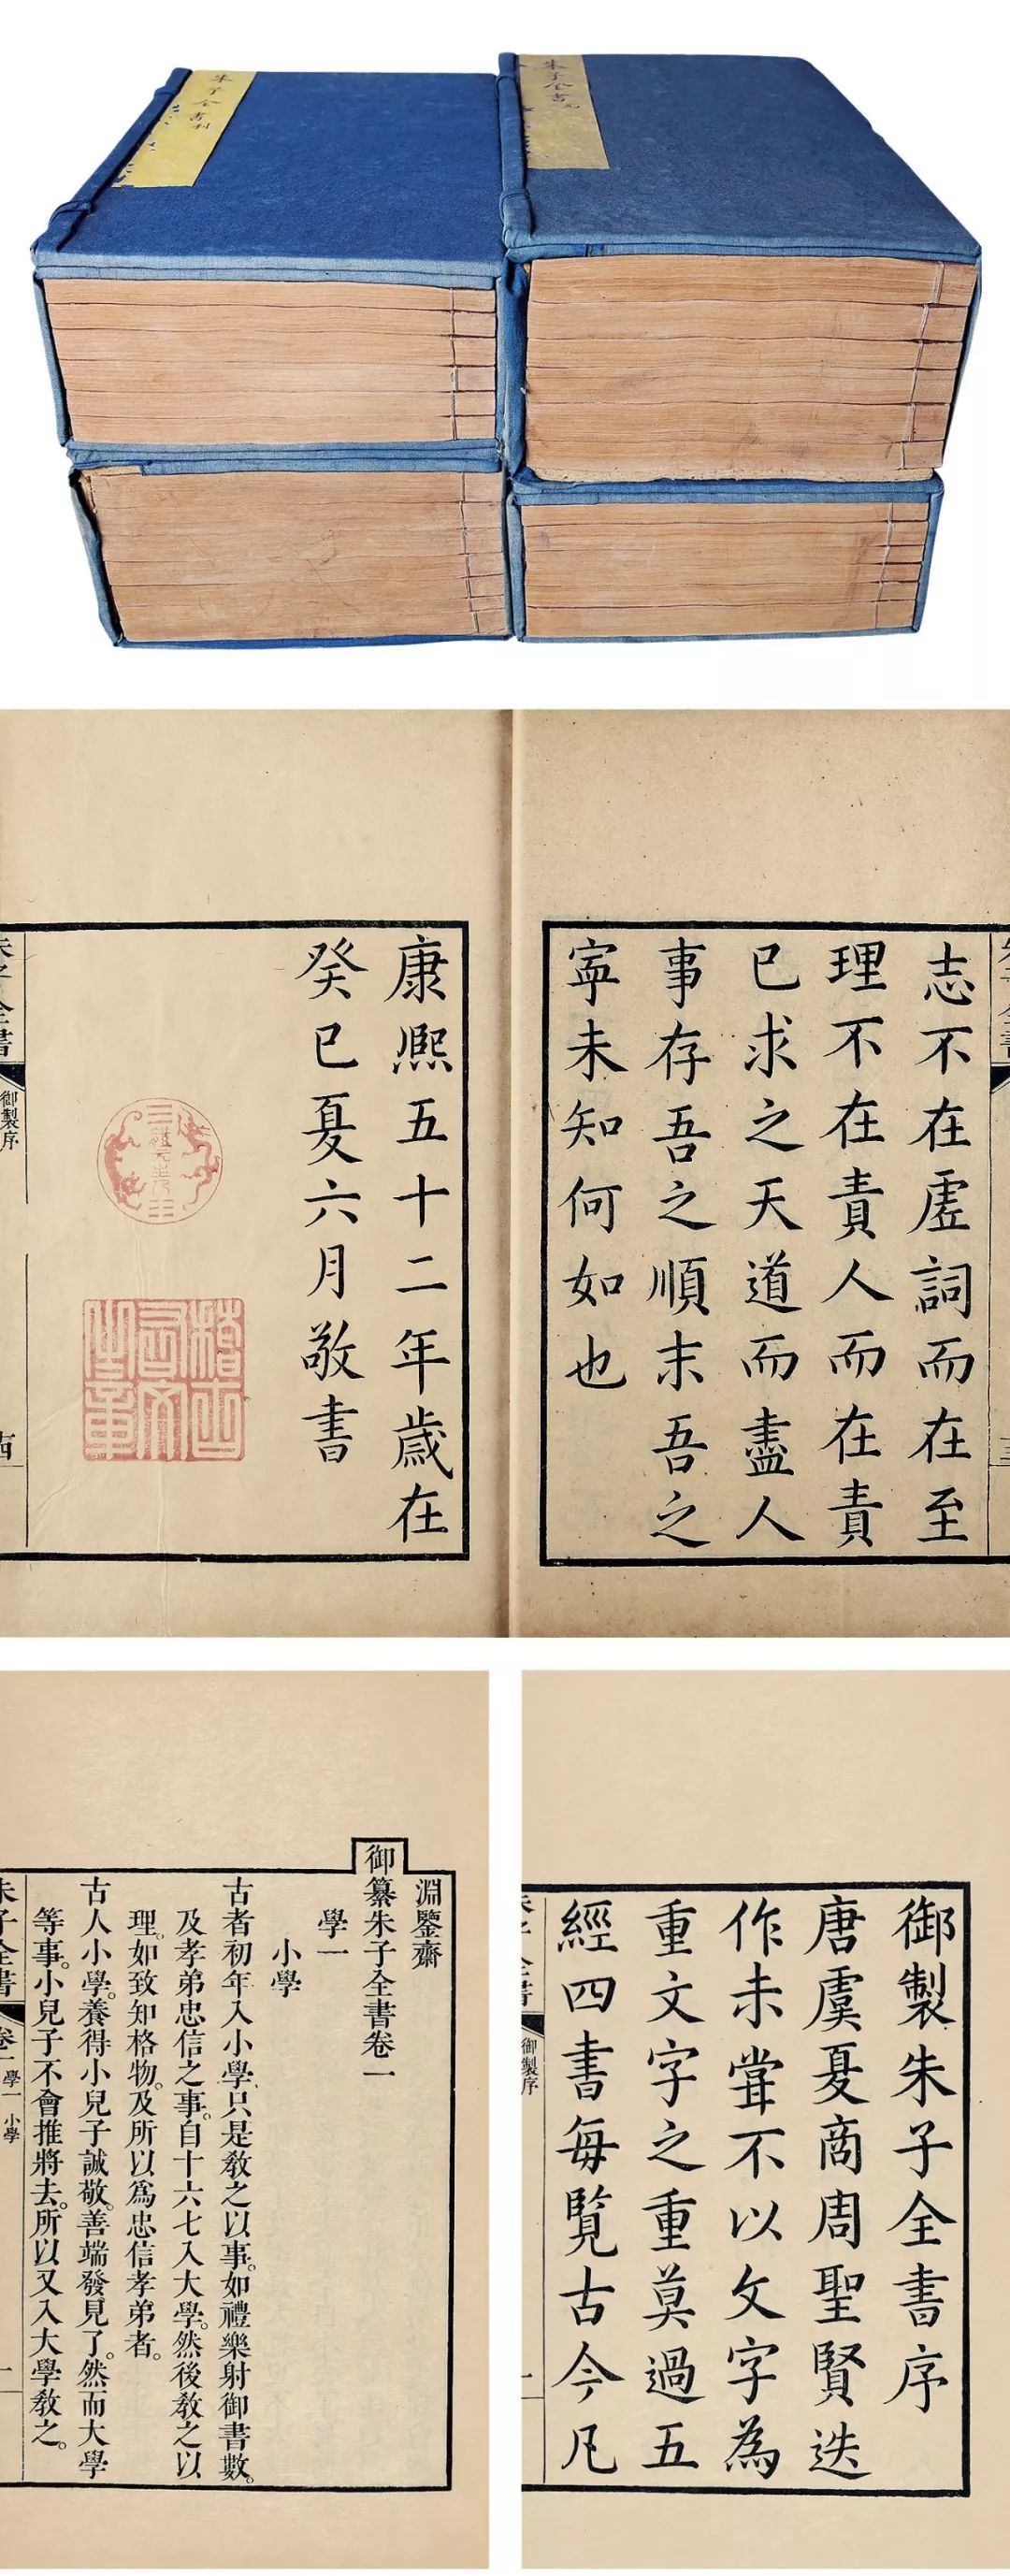 朱子全書利
朱子全書元
志不在虛詞而在至
理不在責人而在責
已求之天道而盡人
事存吾之順末吾之
寧未知何如也
康熙五十二年歲在
癸巳夏六月敬書
朱子全書
御製序
稽古右文之章
御製朱子全書序
唐虞夏商周聖賢迭
作未嘗不以文字為
重文字之重莫過五
經四書每覽古今凡
御製序
淵鑒齋
御纂朱子全書卷一
學一
小學
古者初年入小學只是敎之以事。如禮樂射御書數。
及孝弟忠信之事。自十六七入大學。然後敎之以
理。如致知格物。及所以爲忠信孝弟者。
古人小學。養得小兒子誠敬。善端發見了。然而大學
等事。小兒子不會推將去。所以又入大學敎之。
朱子全書
卷一
學一
小學
一